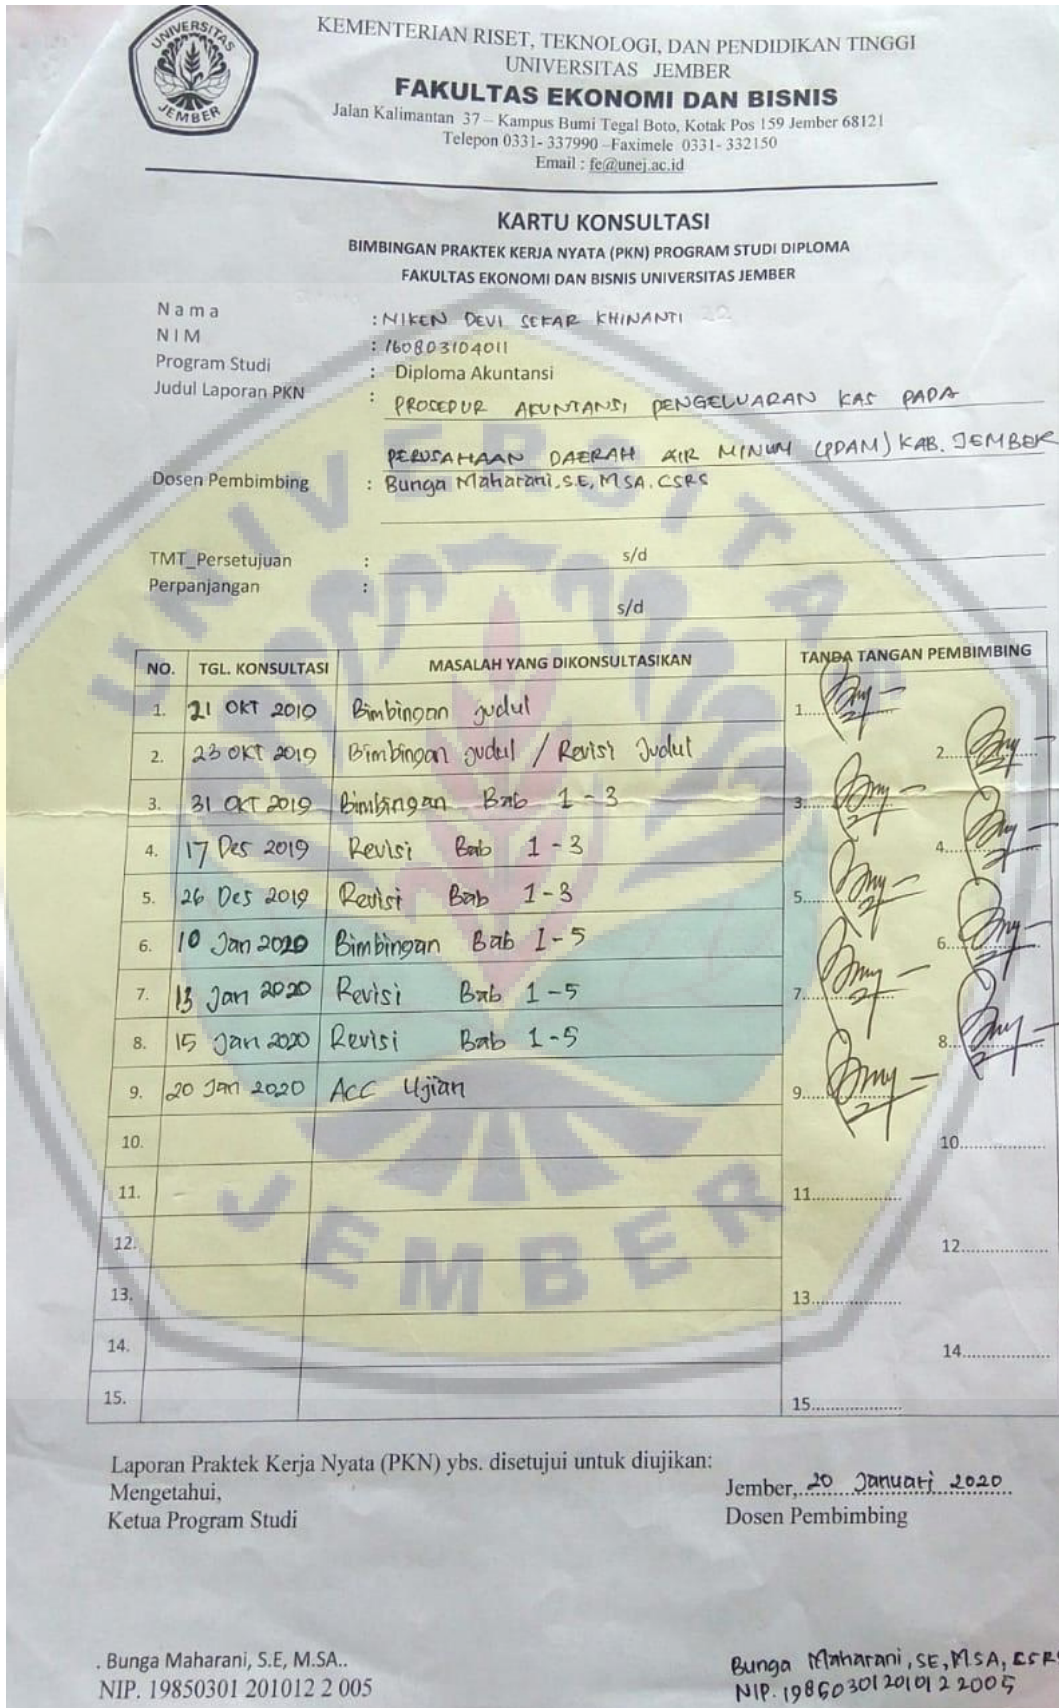 UNIVERSITAS
JEMBER
KEMENTERIAN RISET, TEKNOLOGI, DAN PENDIDIKAN TINGGI
UNIVERSITAS JEMBER
FAKULTAS EKONOMI DAN BISNIS
Jalan Kalimantan 37 – Kampus Bumi Tegal Boto, Kotak Pos 159 Jember 68121
Telepon 0331- 337990 –Faximele 0331- 332150
Email : fe@unej.ac.id
KARTU KONSULTASI
BIMBINGAN PRAKTEK KERJA NYATA (PKN) PROGRAM STUDI DIPLOMA
FAKULTAS EKONOMI DAN BISNIS UNIVERSITAS JEMBER
Nama : NIKEN DEVI SEKAR KHINANTI
NIM : 160803104011
Program Studi : Diploma Akuntansi
Judul Laporan PKN : PROSEDUR AKUNTANSI PENGELUARAN KAS PADA
PERUSAHAAN DAERAH AIR MINUM (PDAM) KAB. JEMBER
Dosen Pembimbing : Bunga Maharani, S.E, M.SA. CSRS
TMT_Persetujuan : s/d
Perpanjangan : s/d
NO. TGL. KONSULTASI MASALAH YANG DIKONSULTASIKAN TANDA TANGAN PEMBIMBING
1. 21 OKT 2019 Bimbingan judul 1.....
2. 23 OKT 2019 Bimbingan judul / Revisi Judul 2.....
3. 31 OKT 2019 Bimbingan Bab 1 - 3 3.....
4. 17 Des 2019 Revisi Bab 1 - 3 4.....
5. 26 Des 2019 Revisi Bab 1 - 3 5.....
6. 10 Jan 2020 Bimbingan Bab 1 - 5 6.....
7. 13 Jan 2020 Revisi Bab 1 - 5 7.....
8. 15 Jan 2020 Revisi Bab 1 - 5 8.....
9. 20 Jan 2020 Acc Ujian 9.....
10. 10.....
11. 11.....
12. 12.....
13. 13.....
14. 14.....
15. 15.....
UNIVERSITAS
JEMBER
Laporan Praktek Kerja Nyata (PKN) ybs. disetujui untuk diujikan:
Mengetahui, Jember, 20 Januari 2020
Ketua Program Studi Dosen Pembimbing
. Bunga Maharani, S.E, M.SA.. Bunga Maharani, SE, M.SA, CSRS
NIP. 19850301 201012 2 005 NIP. 19850301 201012 2005